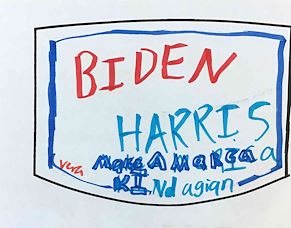 BIDEN
HARRIS
Vera Make A Marica a
KI Nd agian